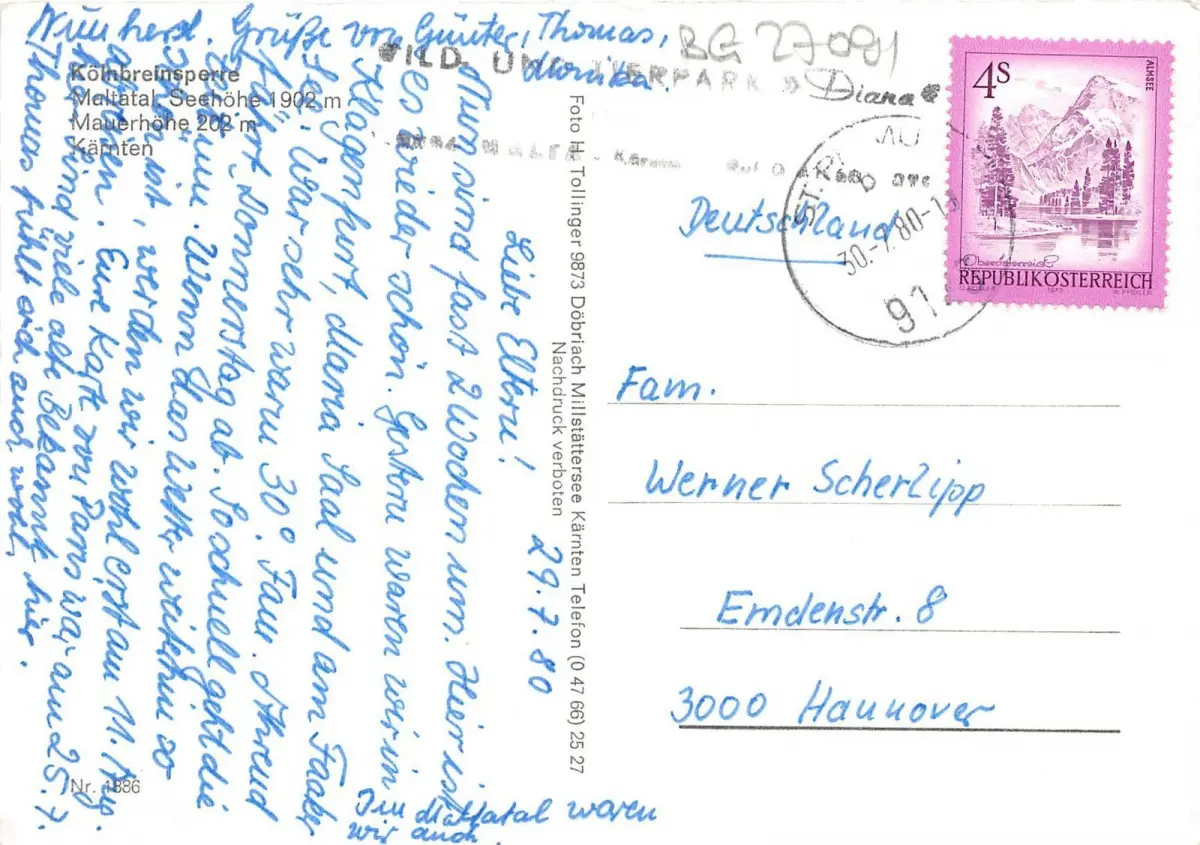 Kölnbreinsperre
Maltatal, Seehöhe 1902 m
Mauerhöhe 202 m
Kärnten
29.7.80
Liebe Eltern!
Nun sind fast 2 Wochen um. Hier ist
es wieder schön. Gestern waren wir in
Klagenfurt, Maria Saal und am Faaker
See. War sehr warm 30°. Fam. Ahrend
fährt Donnerstag ab. So schnell geht die
Zeit um. Wenn das Wetter weiterhin so
schön ist, werden wir wohl erst am 11. Aug.
fahren. Eure Karte von Paris war am 25.7.
da. Sind viele alte Bekannte hier.
Thomas fühlt sich auch wohl
Grüße von Günter, Thomas,
Monika.
Diana
Im Maltatal waren
wir auch.
Nr. 1886
Foto H. Tollinger 9873 Döbriach Millstättersee Kärnten Telefon (0 47 66) 25 27
Nachdruck verboten
BG 27091
WILD UND TIERPARK
30.-7.80-15
91
4S
ALMSEE
Oberösterreich
REPUBLIK ÖSTERREICH
Deutschland
Fam.
Werner Scherlipp
Emdenstr. 8
3000 Hannover